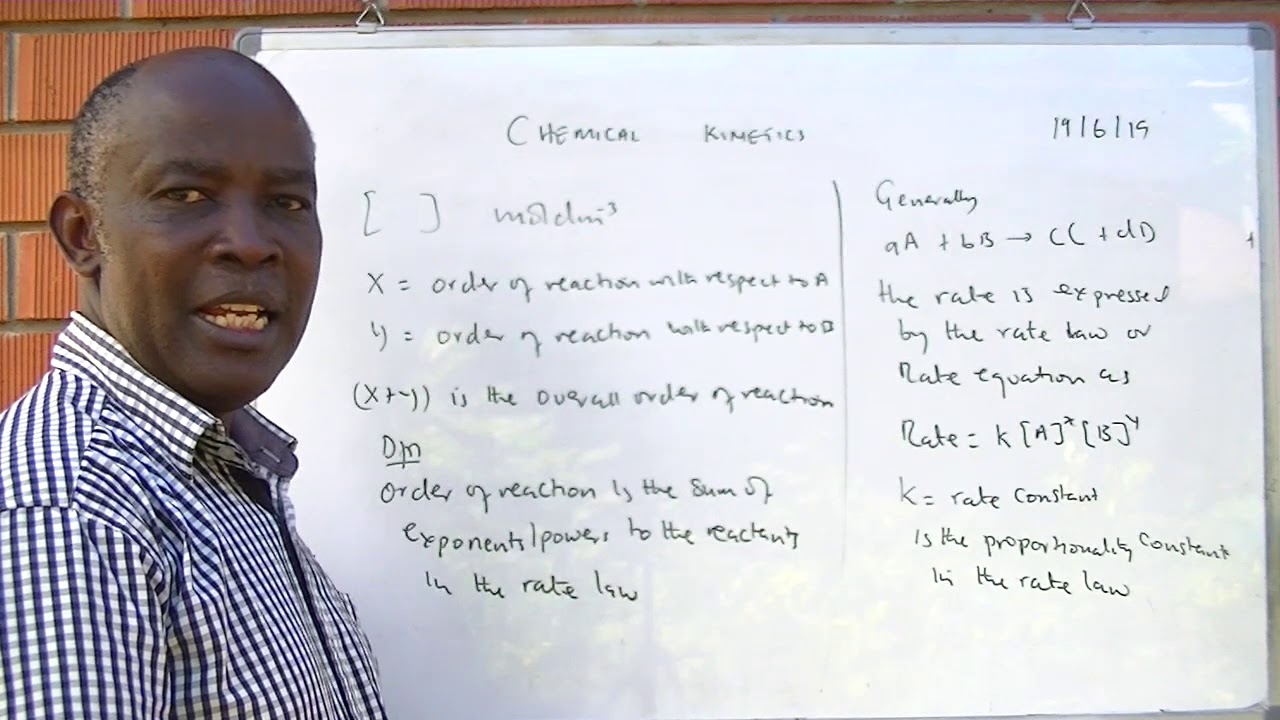 CHEMICAL KINETICS
19/6/19
[ ] moldm⁻³
X = order of reaction with respect to A
y = order of reaction with respect to B
(x+y) is the overall order of reaction
Dfn
Order of reaction is the sum of
exponents/powers to the reactants
in the rate law
Generally
aA + bB → cC + dD
the rate is expressed
by the rate law or
Rate equation as
Rate = k[A]ˣ[B]ʸ
k = rate constant
is the proportionality constant
in the rate law